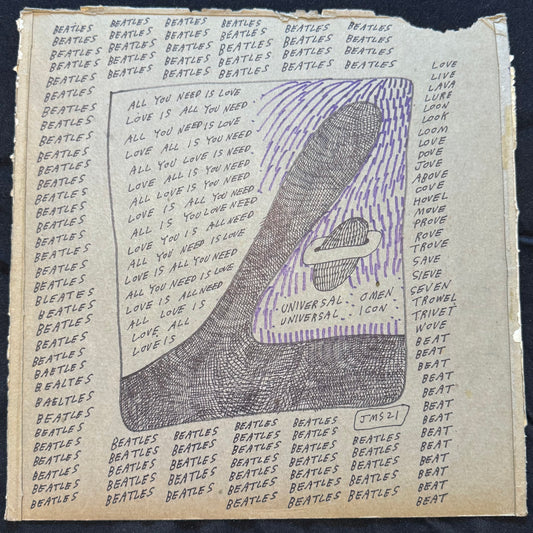 BEATLES BEATLES BEATLES BEATLES BEATLES BEATLES
BEATLES BEATLES BEATLES BEATLES BEATLES BEATLES
BEATLES BEATLES BEATLES BEATLES BEATLES BEATLES
BEATLES BEATLES BEATLES BEATLES BEATLES BEATLES
BEATLES
BEATLES
BEATLES
BEATLES
BEATLES
BEATLES
BEATLES
BEATLES
BEATLES
BEATLES
BEATLES
BEATLES
BEATLES
BEATLES
BEATLES
BLEATES
BEATLES
BEATLES
BEATLES
BEATLES
BAETLES
BEALTES
BAELTLES
BEATLES
ALL YOU NEED IS LOVE
LOVE IS ALL YOU NEED
ALL YOU NEED IS LOVE
LOVE ALL IS YOU NEED
ALL YOU LOVE IS NEED
LOVE ALL IS YOU NEED
ALL LOVE IS YOU NEED
LOVE IS ALL YOU NEED
ALL IS YOU LOVE NEED
LOVE YOU IS ALL NEED
ALL YOU NEED IS LOVE
LOVE IS ALL YOU NEED
ALL YOU NEED IS LOVE
LOVE IS ALL NEED
ALL LOVE IS
LOVE ALL
LOVE IS
UNIVERSAL OMEN
UNIVERSAL ICON
JMS21
LOVE
LIVE
LAVA
LURE
LOON
LOOK
LOOM
LOVE
DOVE
JOVE
ABOVE
COVE
HOVEL
MOVE
PROVE
ROVE
TROVE
SAVE
SIEVE
SEVEN
TROWEL
TRIVET
WOVE
BEAT
BEAT
BEAT
BEAT
BEAT
BEAT
BEAT
BEAT
BEAT
BEAT
BEAT
BEAT
BEATLES BEATLES BEATLES
BEATLES BEATLES BEATLES BEATLES BEATLES BEATLES
BEATLES BEATLES BEATLES BEATLES BEATLES BEATLES
BEATLES BEATLES BEATLES BEATLES BEATLES BEATLES
BEATLES BEATLES BEATLES BEATLES BEATLES BEATLES
BEATLES BEATLES BEATLES BEATLES BEATLES BEATLES